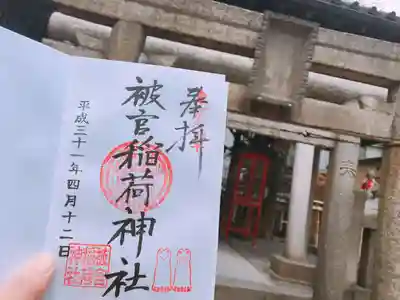 奉拝
被官稲荷神社
平成三十一年四月十二日